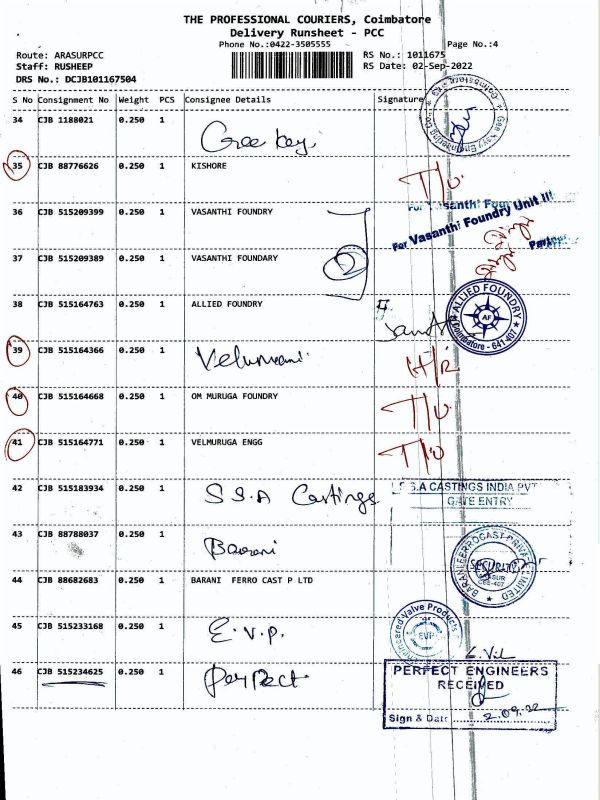 THE PROFESSIONAL COURIERS, Coimbatore
Delivery Runsheet - PCC
Phone No.:0422-3505555
Page No.:4
Route: ARASURPCC
RS No.: 1011675
Staff: RUSHEEP
RS Date: 02-Sep-2022
DRS No.: DCJB101167504
S No Consignment No Weight PCS Consignee Details Signature
34 CJB 1188021 0.250 1 Gree key
35 CJB 88776626 0.250 1 KISHORE T/U
36 CJB 515209399 0.250 1 VASANTHI FOUNDRY
For Vasanthi Foundry Unit III
Partner
37 CJB 515209389 0.250 1 VASANTHI FOUNDARY
38 CJB 515164763 0.250 1 ALLIED FOUNDRY
ALLIED FOUNDRY
AF
Coimbatore - 641 407
39 CJB 515164366 0.250 1 Velumani H/R
40 CJB 515164668 0.250 1 OM MURUGA FOUNDRY T/U
41 CJB 515164771 0.250 1 VELMURUGA ENGG T/U
42 CJB 515183934 0.250 1 S.S.A Castings
S.A CASTINGS INDIA PVT
GATE ENTRY
43 CJB 88788037 0.250 1 Barani
SECURITY
44 CJB 88682683 0.250 1 BARANI FERRO CAST P LTD
45 CJB 515233168 0.250 1 E.V.P.
Engineered Valve Products
EVP
46 CJB 515234625 0.250 1 Perfect
PERFECT ENGINEERS
RECEIVED
Sign & Date 2.09.22